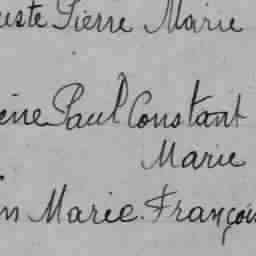 uste Pierre Marie
eine Paul Constant
Marie
in Marie. François